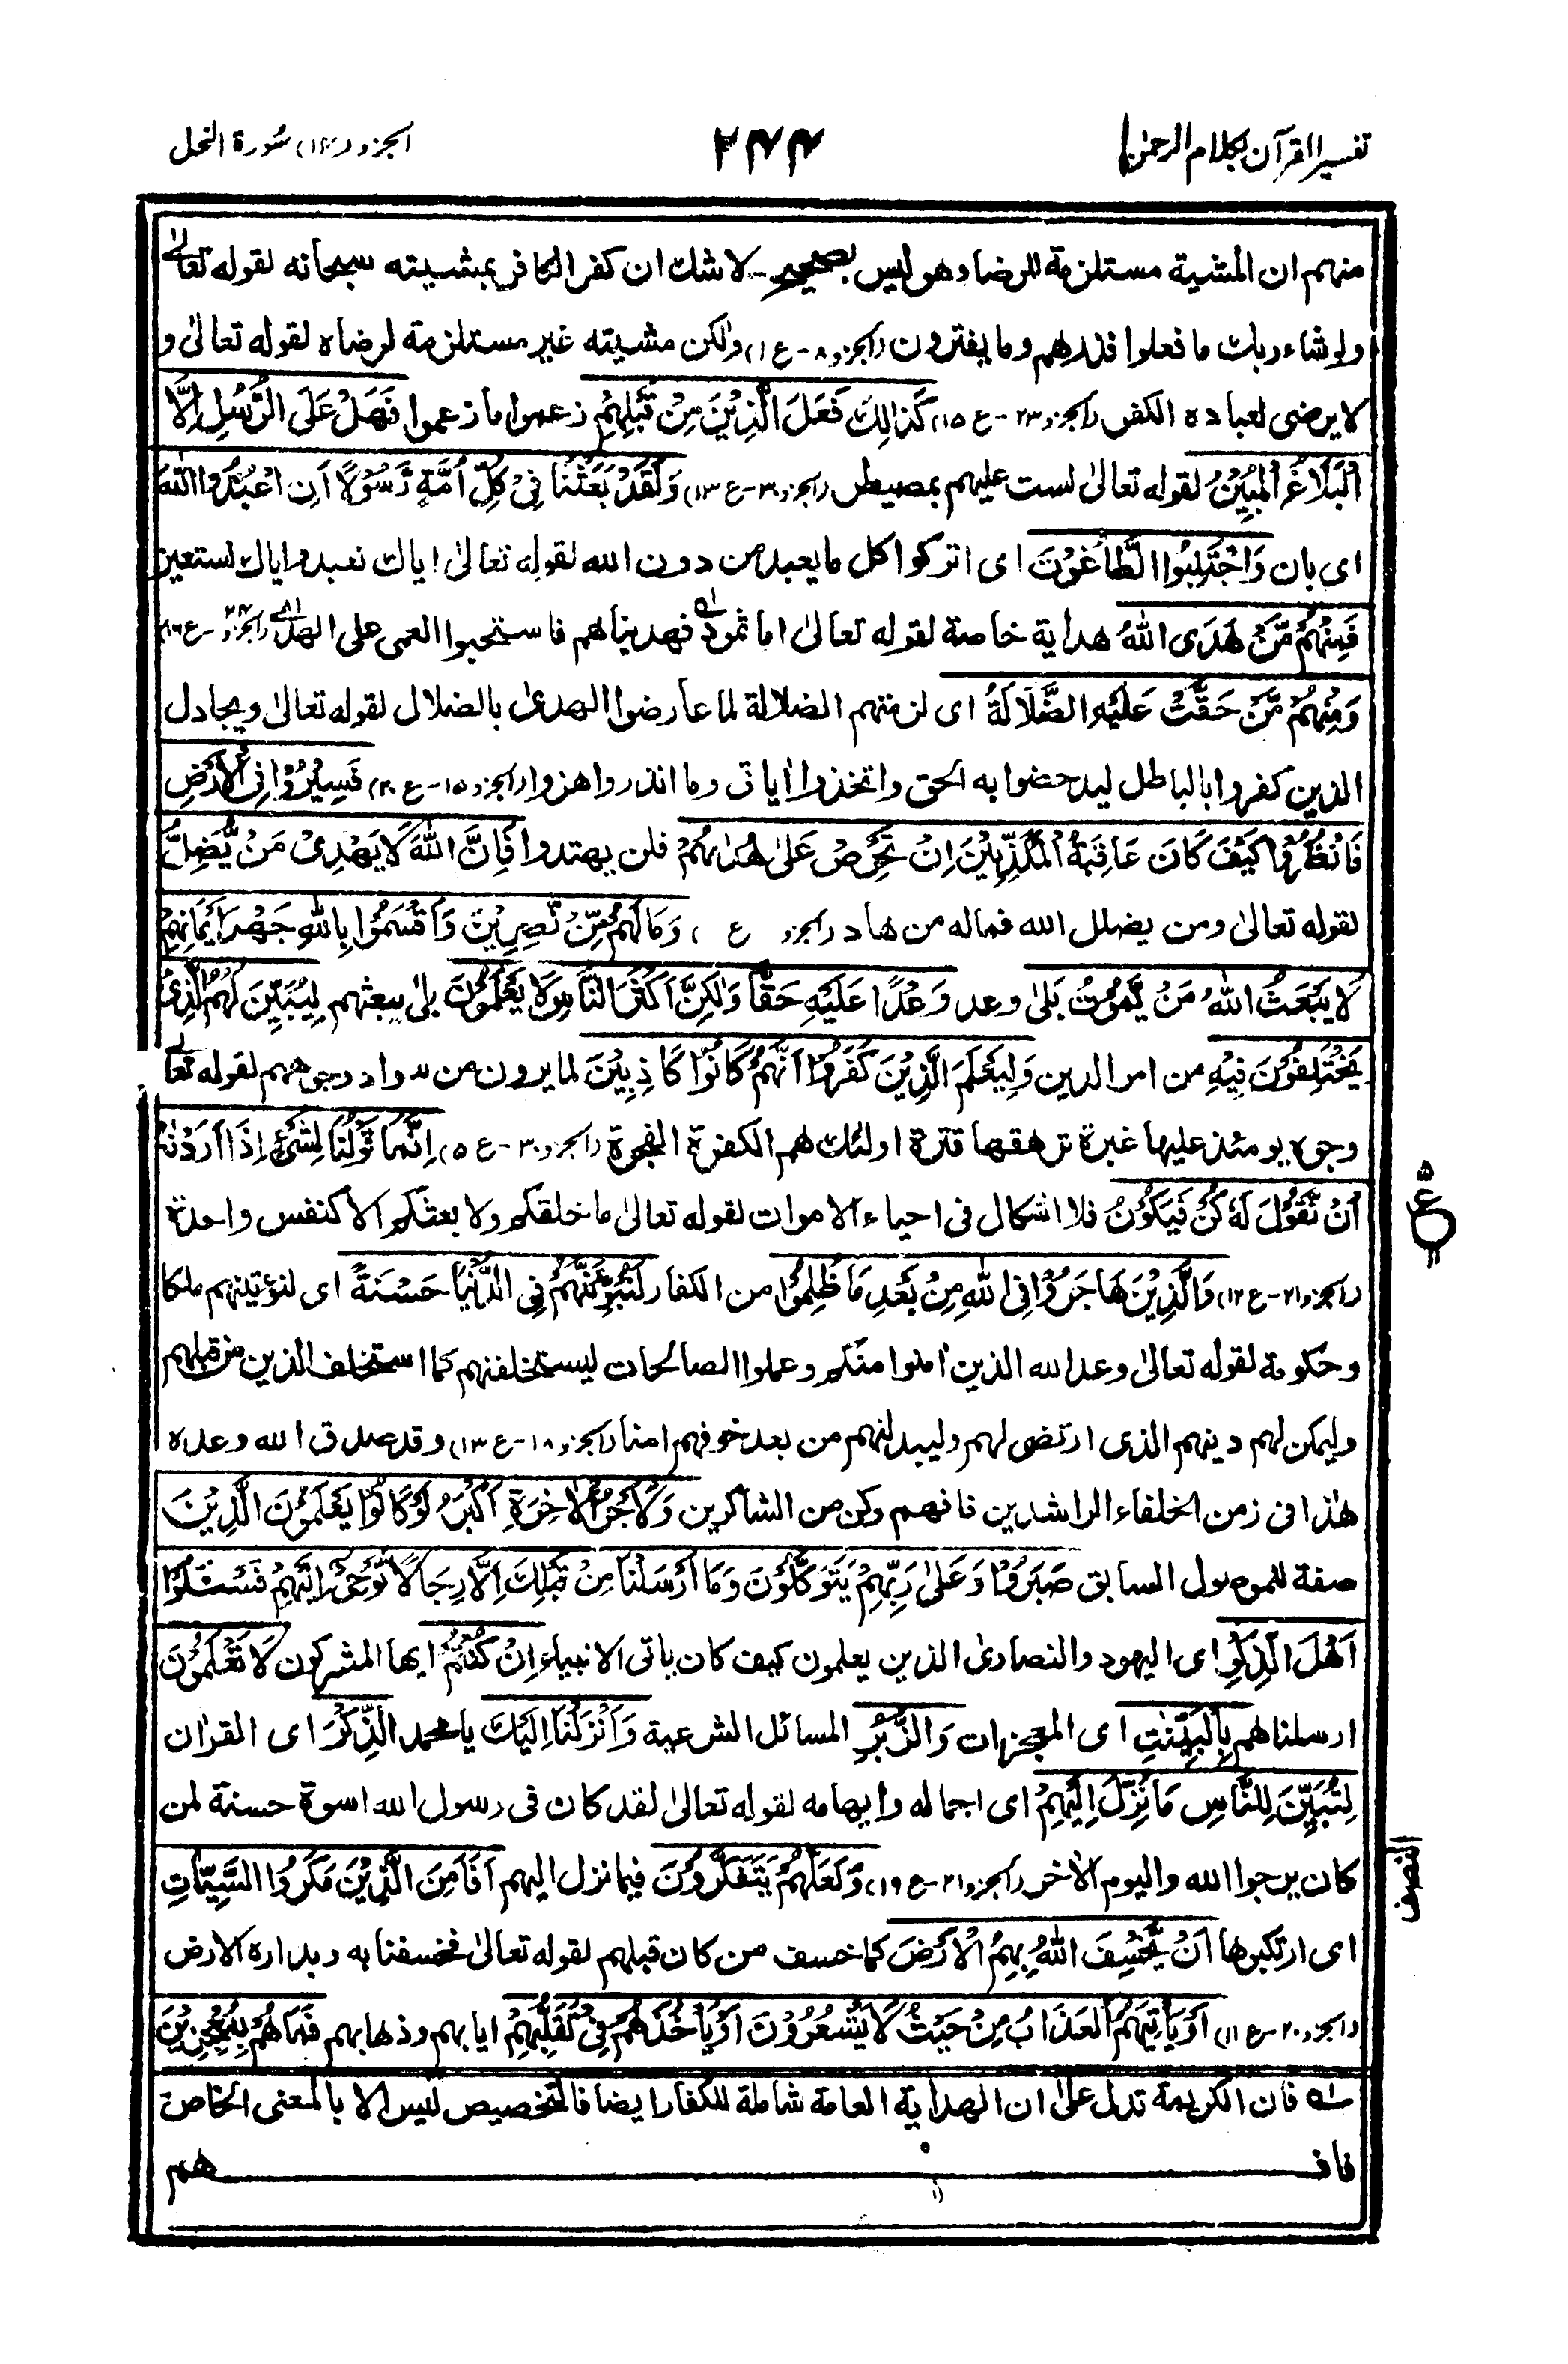 تفسير القرآن بكلام الرحمٰن
٢٤٤
الجزو (١٤) سُورة النحل
منهم ان المشية مستلزمة للرضا وهو ليس بصحيح - لا شك ان كفر الكافر بمشيته سبحانه لقوله تعالىٰ
ولو شاء ربك ما فعلوا فذرهم وما يفترون (الجزو ٨ - ع ١) ولٰكن مشيته غير مستلزمة لرضاه لقوله تعالىٰ و
لا يرضى لعباده الكفر (الجزو ٢٣ - ع ١٥) كَذٰلِكَ فَعَلَ الَّذِيْنَ مِنْ قَبْلِهِمْ زعموا ما زعموا فَهَلْ عَلَى الرُّسُلِ اِلَّا
الْبَلَاغُ الْمُبِيْنُ لقوله تعالىٰ لست عليهم بمصيطر (الجزو ٣٠ - ع ١٣) وَلَقَدْ بَعَثْنَا فِيْ كُلِّ اُمَّةٍ رَّسُوْلًا اَنِ اعْبُدُوا اللّٰهَ
اى بان وَاجْتَنِبُوا الطَّاغُوْتَ اى اتركوا كل ما يعبد من دون الله لقوله تعالىٰ اياك نعبد واياك نستعين
فَمِنْهُمْ مَّنْ هَدَى اللّٰهُ هداية خاصة لقوله تعالىٰ اما ثمود فهديناهم فاستحبوا العمى على الهدىٰ (الجزو ٢٤ - ع ١٦)
وَمِنْهُمْ مَّنْ حَقَّتْ عَلَيْهِ الضَّلَالَةُ اى لزمتهم الضلالة لما عارضوا الهدىٰ بالضلال لقوله تعالىٰ ويجادل
الذين كفروا بالباطل ليدحضوا به الحق واتخذوا اٰياتى وما انذروا هزوا (الجزو ١٥ - ع ٢٠) فَسِيْرُوْا فِى الْاَرْضِ
فَانْظُرُوْا كَيْفَ كَانَ عَاقِبَةُ الْمُكَذِّبِيْنَ اِنْ تَحْرِصْ عَلىٰ هُدٰىهُمْ فلن يهتدوا فَاِنَّ اللّٰهَ لَا يَهْدِىْ مَنْ يُّضِلُّ
لقوله تعالىٰ ومن يضلل الله فماله من هاد (الجزو ع ) وَمَا لَهُمْ مِّنْ نّٰصِرِيْنَ وَاَقْسَمُوْا بِاللّٰهِ جَهْدَ اَيْمَانِهِمْ
لَا يَبْعَثُ اللّٰهُ مَنْ يَّمُوْتُ بَلىٰ وعد وَعْدًا عَلَيْهِ حَقًّا وَّلٰكِنَّ اَكْثَرَ النَّاسِ لَا يَعْلَمُوْنَ بلىٰ يبعثهم لِيُبَيِّنَ لَهُمُ الَّذِىْ
يَخْتَلِفُوْنَ فِيْهِ من امر الدين وَلِيَعْلَمَ الَّذِيْنَ كَفَرُوْا اَنَّهُمْ كَانُوْا كَاذِبِيْنَ لما يرون من سواد وجوههم لقوله تعالىٰ
وجوه يومئذ عليها غبرة ترهقها قترة اولئك هم الكفرة الفجرة (الجزو ٣٠ - ع ٥) اِنَّمَا قَوْلُنَا لِشَيْءٍ اِذَا اَرَدْنٰهُ
اَنْ نَّقُوْلَ لَهٗ كُنْ فَيَكُوْنُ فلا اشكال فى احياء الاموات لقوله تعالىٰ ما خلقكم ولا بعثكم الا كنفس واحدة
(الجزو ٢١ - ع ١٢) وَالَّذِيْنَ هَاجَرُوْا فِى اللّٰهِ مِنْ بَعْدِ مَا ظُلِمُوْا من الكفار لَنُبَوِّئَنَّهُمْ فِى الدُّنْيَا حَسَنَةً اى لنؤتينهم ملكا
وحكومة لقوله تعالىٰ وعد الله الذين اٰمنوا منكم وعملوا الصالحات ليستخلفنهم كما استخلف الذين من قبلهم
وليمكن لهم دينهم الذى ارتضى لهم وليبدلنهم من بعد خوفهم امنا (الجزو ١٨ - ع ١٣) وقد صدق الله وعده
هٰذا فى زمن الخلفاء الراشدين فافهم وكن من الشاكرين وَلَاَجْرُ الْاٰخِرَةِ اَكْبَرُ لَوْ كَانُوْا يَعْلَمُوْنَ الَّذِيْنَ
صفة للموصول السابق صَبَرُوْا وَعَلىٰ رَبِّهِمْ يَتَوَكَّلُوْنَ وَمَا اَرْسَلْنَا مِنْ قَبْلِكَ اِلَّا رِجَالًا نُّوْحِىْ اِلَيْهِمْ فَسْـَٔلُوْا
اَهْلَ الذِّكْرِ اى اليهود والنصارىٰ الذين يعلمون كيف كان ياتى الانبياء اِنْ كُنْتُمْ ايها المشركون لَا تَعْلَمُوْنَ
ارسلناهم بِالْبَيِّنٰتِ اى المعجزات وَالزُّبُرِ المسائل الشرعية وَاَنْزَلْنَا اِلَيْكَ يا محمد الذِّكْرَ اى القراٰن
لِتُبَيِّنَ لِلنَّاسِ مَا نُزِّلَ اِلَيْهِمْ اى اجماله وابهامه لقوله تعالىٰ لقد كان فى رسول الله اسوة حسنة لمن
كان يرجوا الله واليوم الاٰخر (الجزو ٢١ - ع ١٩) وَلَعَلَّهُمْ يَتَفَكَّرُوْنَ فيما نزل اليهم اَفَاَمِنَ الَّذِيْنَ مَكَرُوا السَّيِّاٰتِ
اى ارتكبوها اَنْ يَّخْسِفَ اللّٰهُ بِهِمُ الْاَرْضَ كما خسف من كان قبلهم لقوله تعالىٰ فخسفنا به وبداره الارض
(الجزو ٢٠ - ع ١١) اَوْ يَاْتِيَهُمُ الْعَذَابُ مِنْ حَيْثُ لَا يَشْعُرُوْنَ اَوْ يَاْخُذَهُمْ فِىْ تَقَلُّبِهِمْ ايابهم وذهابهم فَمَا هُمْ بِمُعْجِزِيْنَ
ع ٥
النصف
سله فان الكريمة تدل علىٰ ان الهداية العامة شاملة للكفار ايضا فالتخصيص ليس الا بالمعنى الخاص
فافـهم